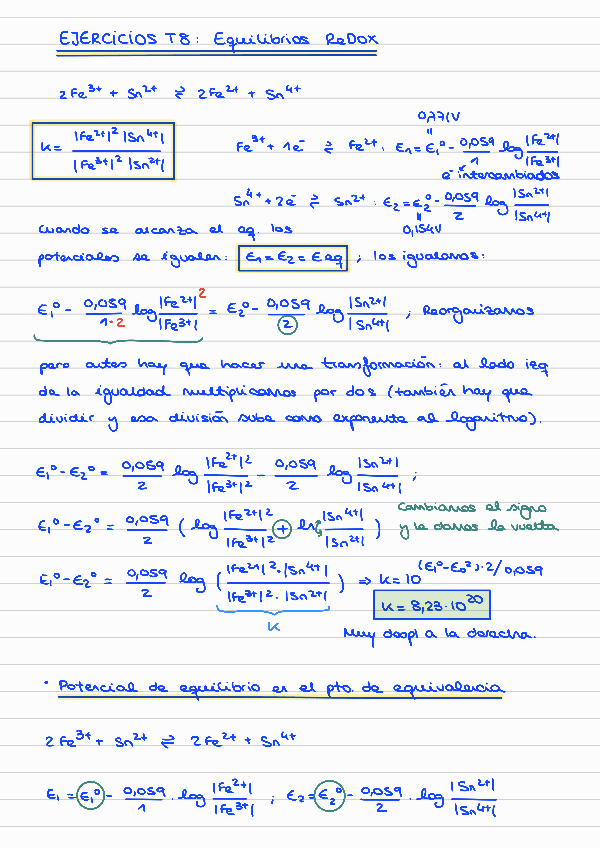 EJERCICIOS T8: Equilibrios ReDox
2Fe³⁺ + Sn²⁺ ⇌ 2Fe²⁺ + Sn⁴⁺
0,771V
K = |Fe²⁺|² |Sn⁴⁺| / |Fe³⁺|² |Sn²⁺|
Fe³⁺ + 1e⁻ ⇌ Fe²⁺ : E₁ = E₁⁰ - 0,059/1 log |Fe²⁺|/|Fe³⁺|
e⁻ intercambiados
Sn⁴⁺ + 2e⁻ ⇌ Sn²⁺ : E₂ = E₂⁰ - 0,059/2 log |Sn²⁺|/|Sn⁴⁺|
0,154V
Cuando se alcanza el eq. los
potenciales se igualan: E₁ = E₂ = E eq ; los igualamos:
E₁⁰ - 0,059/1·2 log |Fe²⁺|²/|Fe³⁺| = E₂⁰ - 0,059/2 log |Sn²⁺|/|Sn⁴⁺| ; Reorganizamos
pero antes hay que hacer una transformación: al lado izq
de la igualdad multiplicamos por dos (también hay que
dividir y esa división sube como exponente al logaritmo).
E₁⁰ - E₂⁰ = 0,059/2 log |Fe²⁺|²/|Fe³⁺|² - 0,059/2 log |Sn²⁺|/|Sn⁴⁺| ;
E₁⁰ - E₂⁰ = 0,059/2 ( log |Fe²⁺|²/|Fe³⁺|² + ln |Sn⁴⁺|/|Sn²⁺| )
Cambiamos el signo
y le damos la vuelta
E₁⁰ - E₂⁰ = 0,059/2 log ( |Fe²⁺|²·|Sn⁴⁺| / |Fe³⁺|²·|Sn²⁺| ) ⇒ K = 10^(E₁⁰-E₂⁰)·2/0,059
K
K = 8,23·10²⁰
Muy despl a la derecha.
· Potencial de equilibrio en el pto. de equivalencia
2Fe³⁺ + Sn²⁺ ⇌ 2Fe²⁺ + Sn⁴⁺
E₁ = E₁⁰ - 0,059/1 · log |Fe²⁺|/|Fe³⁺| ; E₂ = E₂⁰ - 0,059/2 · log |Sn²⁺|/|Sn⁴⁺|